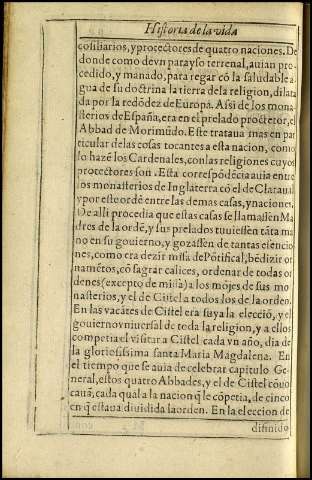 Historia de la vida
cosiliarios, y protectores de quatro naciones. De
donde como de vn parayso terrenal, auian pro
cedido, y manado, para regar cō la saludable a
gua de su doctrina la tierra de la religion, dilata
da por la redōdez de Europa. Assi de los mona
sterios de España, era en el prelado proctetor, el
Abbad de Morimūdo. Este trataua mas en par
ticular de las cosas tocantes a esta nacion, como
lo hazē los Cardenales, con las religiones cuyos
protectores son. Esta correspōdēcia auia entre
los monasterios de Inglaterra cō el de Claraual
y por este ordē entre las demas casas, y naciones.
De alli procedia que estas casas se llamassen Ma
dres de la ordē, y sus prelados tuuiessen tāta ma
no en su gouierno, y gozassen de tantas esencio
nes, como era dezir missa de Pōtifical, bēdizir or
namētos, cō sagrar calices, ordenar de todas or
denes (excepto de missa) a los mōjes de sus mo
nasterios, y el de Cistel a todos los de la orden.
En las vacātes de Cistel era suya la elecciō, y el
gouierno vniuersal de toda la religion, y a ellos
competia el visitar a Cistel cada vn año, dia de
la gloriosissima santa Maria Magdalena. En
el tiempo que se auia de celebrar capitulo Ge
neral, estos quatro Abbades, y el de Cistel cōuo
cauā, cada qual a la nacion q̄ le cōpetia, de cinco
en q̄ estaua diuidida la orden. En la eleccion de
difinido